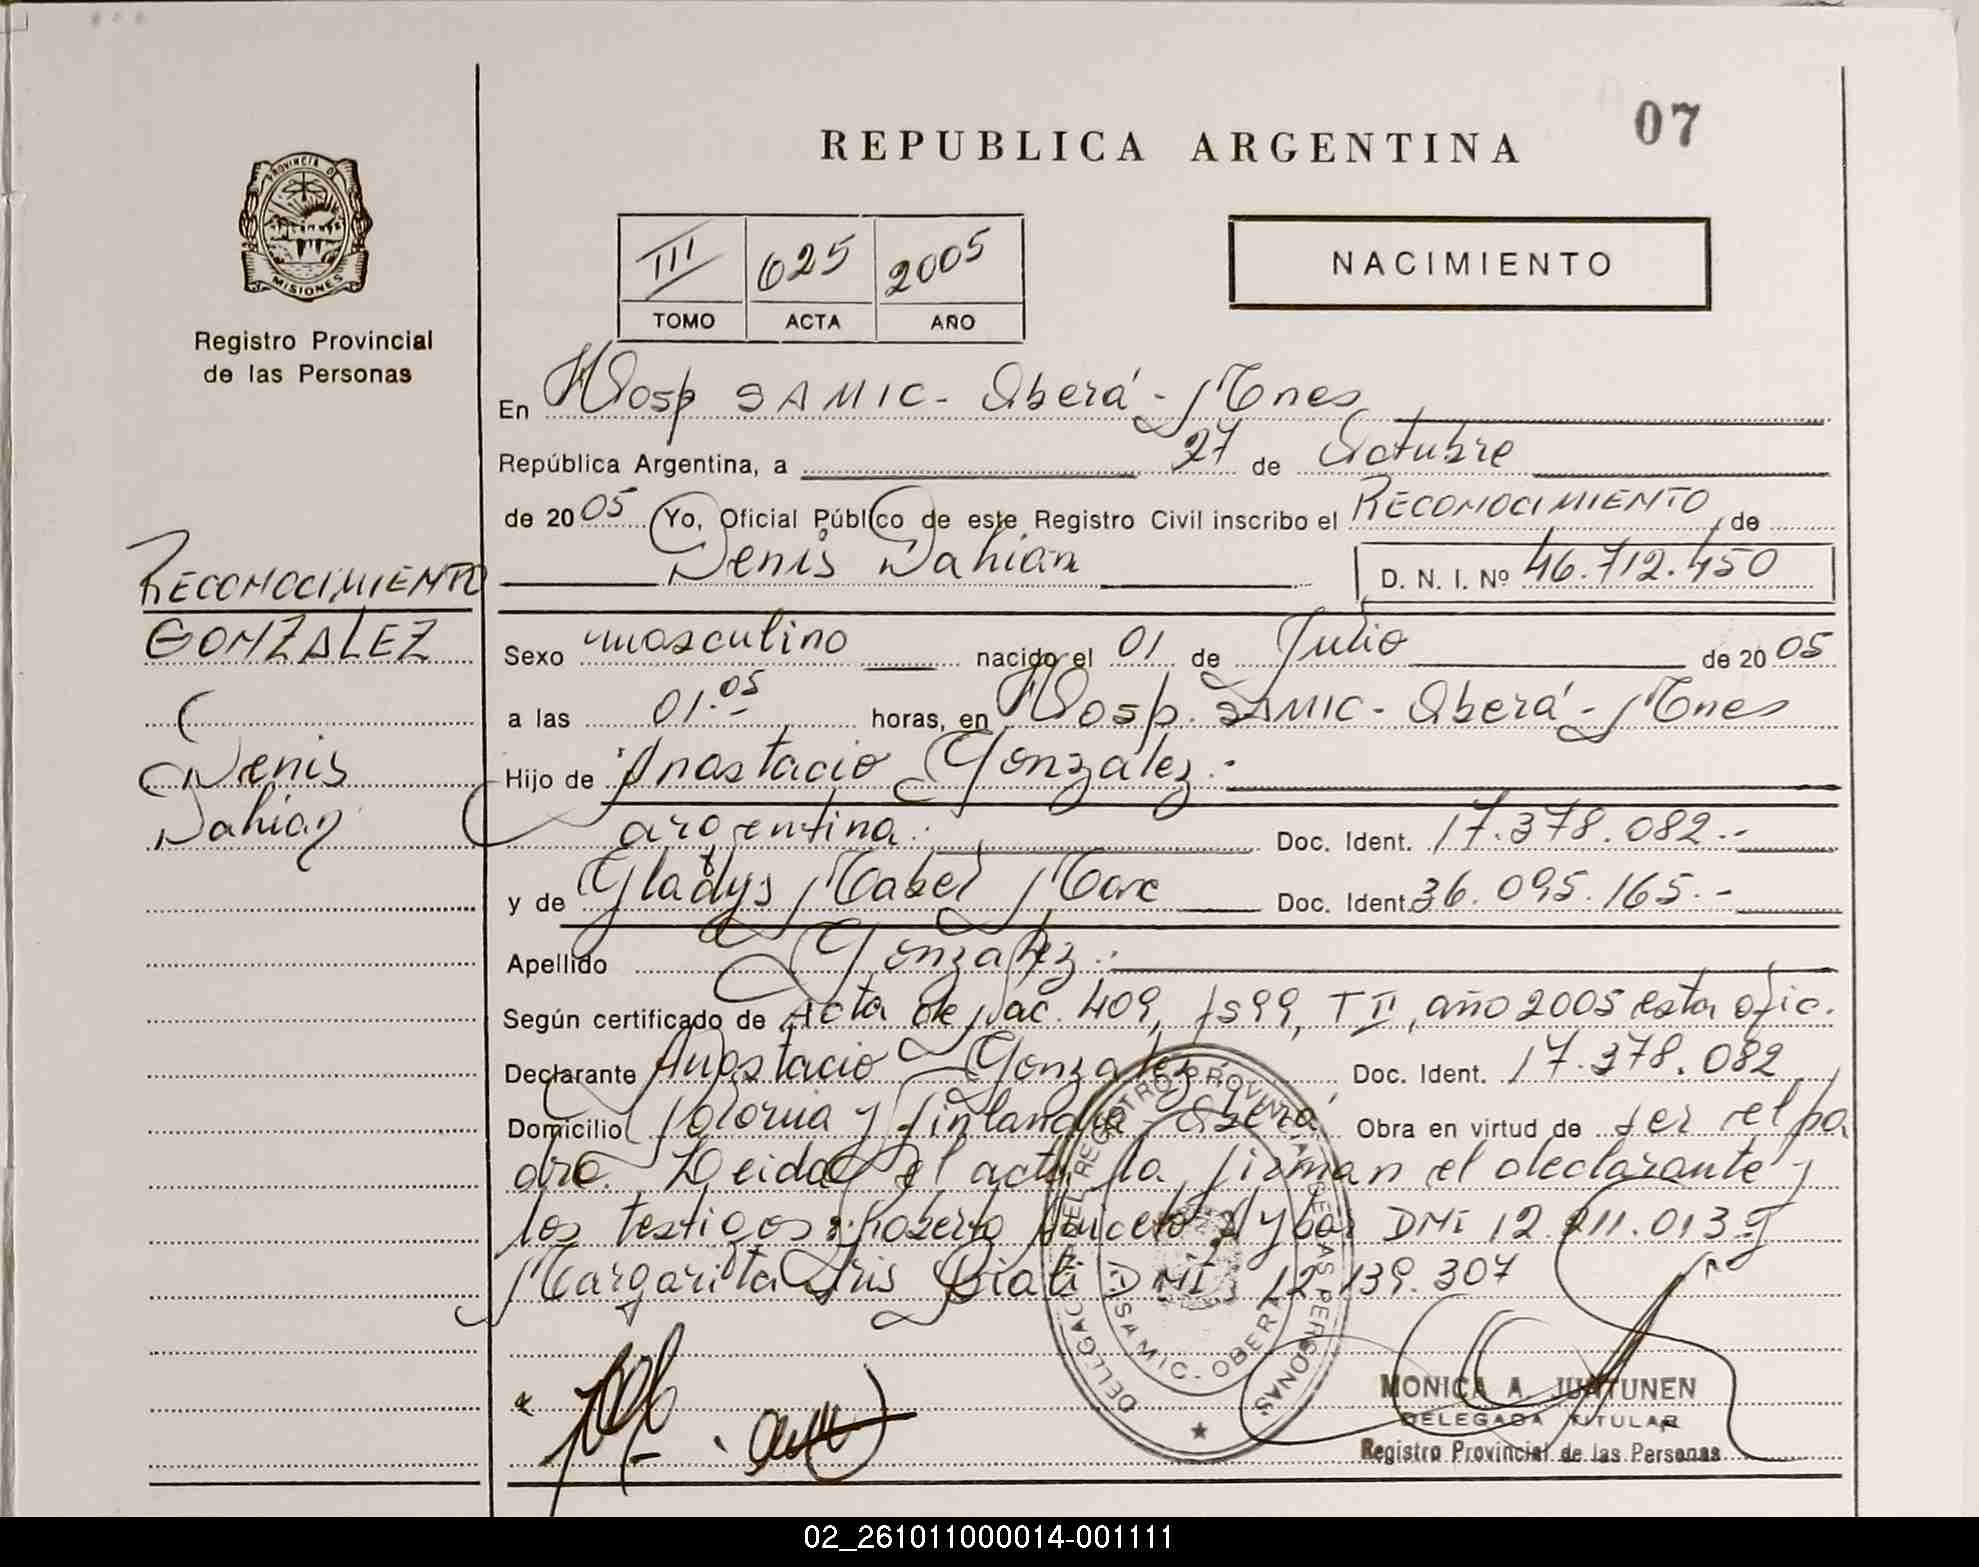 REPUBLICA ARGENTINA
07
PROVINCIA DE
MISIONES
Registro Provincial
de las Personas
III 025 2005
TOMO ACTA AÑO
NACIMIENTO
En Hosp SAMIC - Oberá - Mnes
República Argentina, a 27 de Octubre
de 2005 Yo, Oficial Público de este Registro Civil inscribo el RECONOCIMIENTO de
Denis Dahian D. N. I. Nº 46.712.450
RECONOCIMIENTO
GONZALEZ
Denis
Dahian
Sexo masculino nacido el 01 de Julio de 2005
a las 01.05 horas, en Hosp. SAMIC - Oberá - Mnes
Hijo de Anastacio Gonzalez.-
argentina.- Doc. Ident. 17.378.082.-
y de Gladys Mabel Doc. Ident. 36.095.165.-
Apellido Gonzalez.-
Según certificado de Acta de Nac. 409, fs 99, T II, año 2005 esta ofic.
Declarante Anastacio Gonzalez Doc. Ident. 17.378.082
Domicilio Polonia y Finlandia - Oberá Obra en virtud de ser el pa
dre. Leida el acta la firman el declarante y
los testigos: Roberto DNI 12. .013 y
Margarita Iris DNI 12.139.307
DELEGACION DEL REGISTRO PROVINCIAL DE LAS PERSONAS
SAMIC - OBERA
MONICA A. JUNTUNEN
DELEGADA TITULAR
Registro Provincial de las Personas
02_261011000014-001111